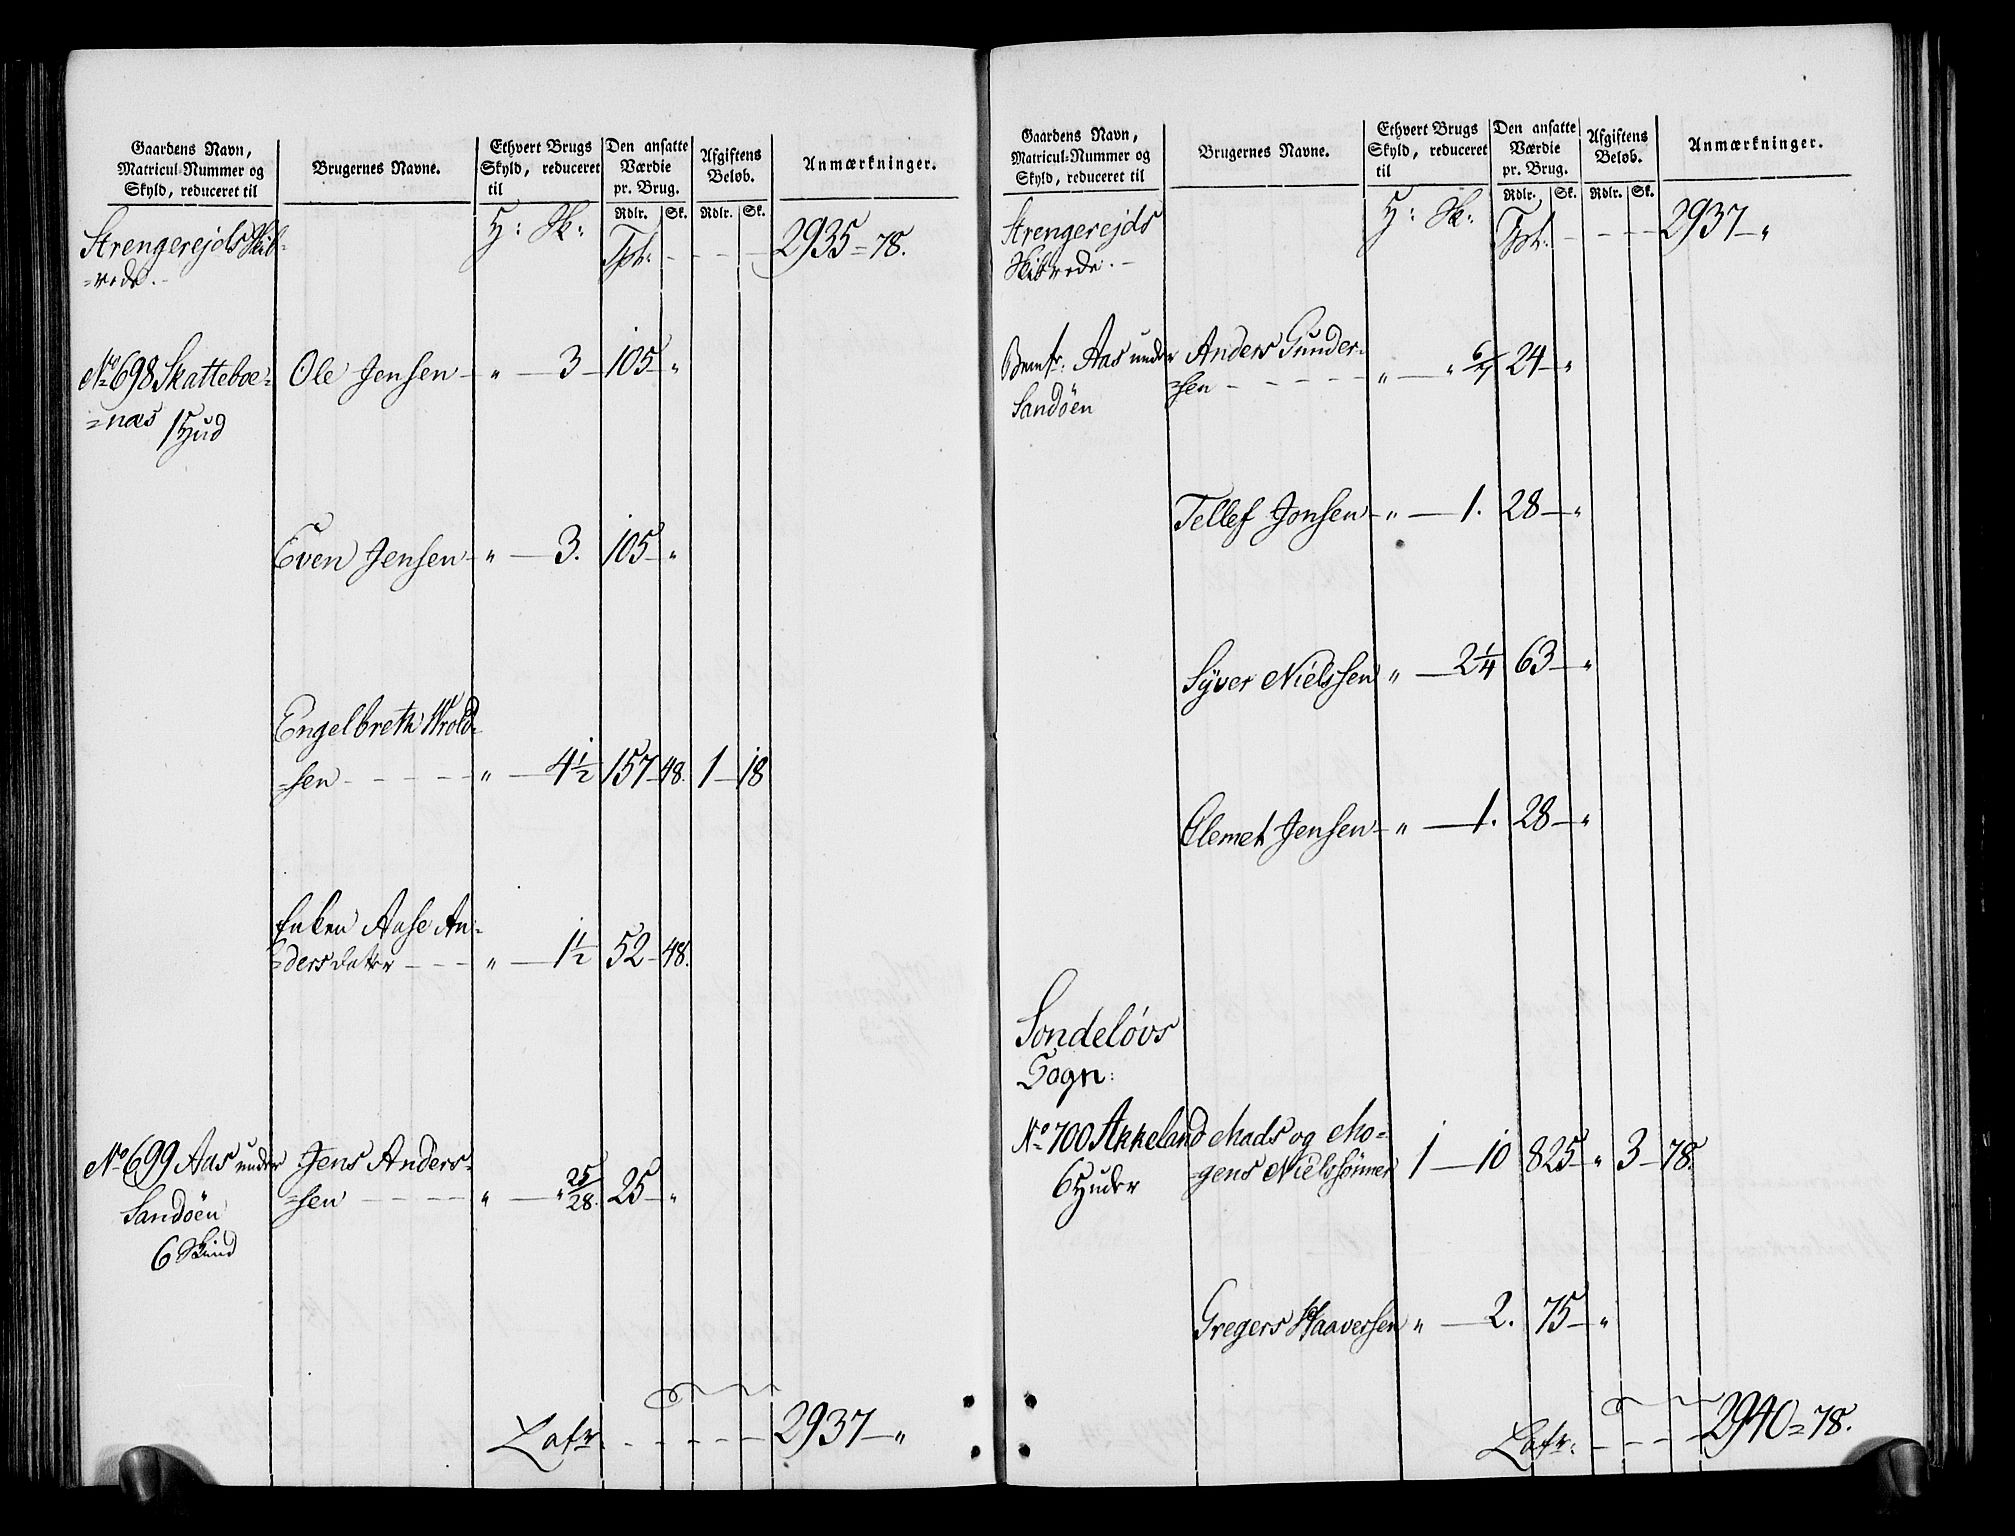 Gaardens Navn,
Matricul-Nummer og
Skyld, reduceret til
Brugernes Navne.
Ethvert Brugs
Skyld, reduceret
til
Den ansatte
Værdie
pr. Brug.
Rdlr. Sk.
Afgiftens
Beløb.
Rdlr. Sk.
Anmærkninger.
Strengerejds Skib-
=rede.
H: Sk:
Tpt. - - - - 2935=78.
No 698 Skatteboe- Ole Jensen - „ - 3 - 105 - „
=næs 1 Hud
Even Jensen - „ - 3. 105 - „
Engelbreth Wrold-
=sen - - - - „ - 4 1/2 157 - 48. 1 - 18
Enken Aase An-
=dersdatter - - - „ - 1 1/2 52 - 48.
No 699 Aas under Jens Anders-
=sen - - - - „ - „ 25/28. 25 - „
Sandöen
6 Skind
Lats - - - - - 2937 - „
Gaardens Navn,
Matricul-Nummer og
Skyld, reduceret til
Brugernes Navne.
Ethvert Brugs
Skyld, reduceret
til
Den ansatte
Værdie
pr. Brug.
Rdlr. Sk.
Afgiftens
Beløb.
Rdlr. Sk.
Anmærkninger.
Strengerejds
Skibrede. -
H: Sk:
Tpt. - - - - 2937 - „
Aas under Anders Gunder-
Sandöen =sen - - - - - „ - „ 6/7 24 - „
Tellef Jonsen - „ - 1. 28 - „
Syver Nielssen „ - 2 1/4 63 - „
Clemet Jensen - „ - 1. 28 - „
Sondelövs
Sogn:
No 700 Akkeland Mads og Mo-
6 Huder =gens Nielssönner 1 - 10 825 - „ 3 - 78.
Gregers Haaversen „ - 2. 75 - „
Lats: - - - - 2940=78.